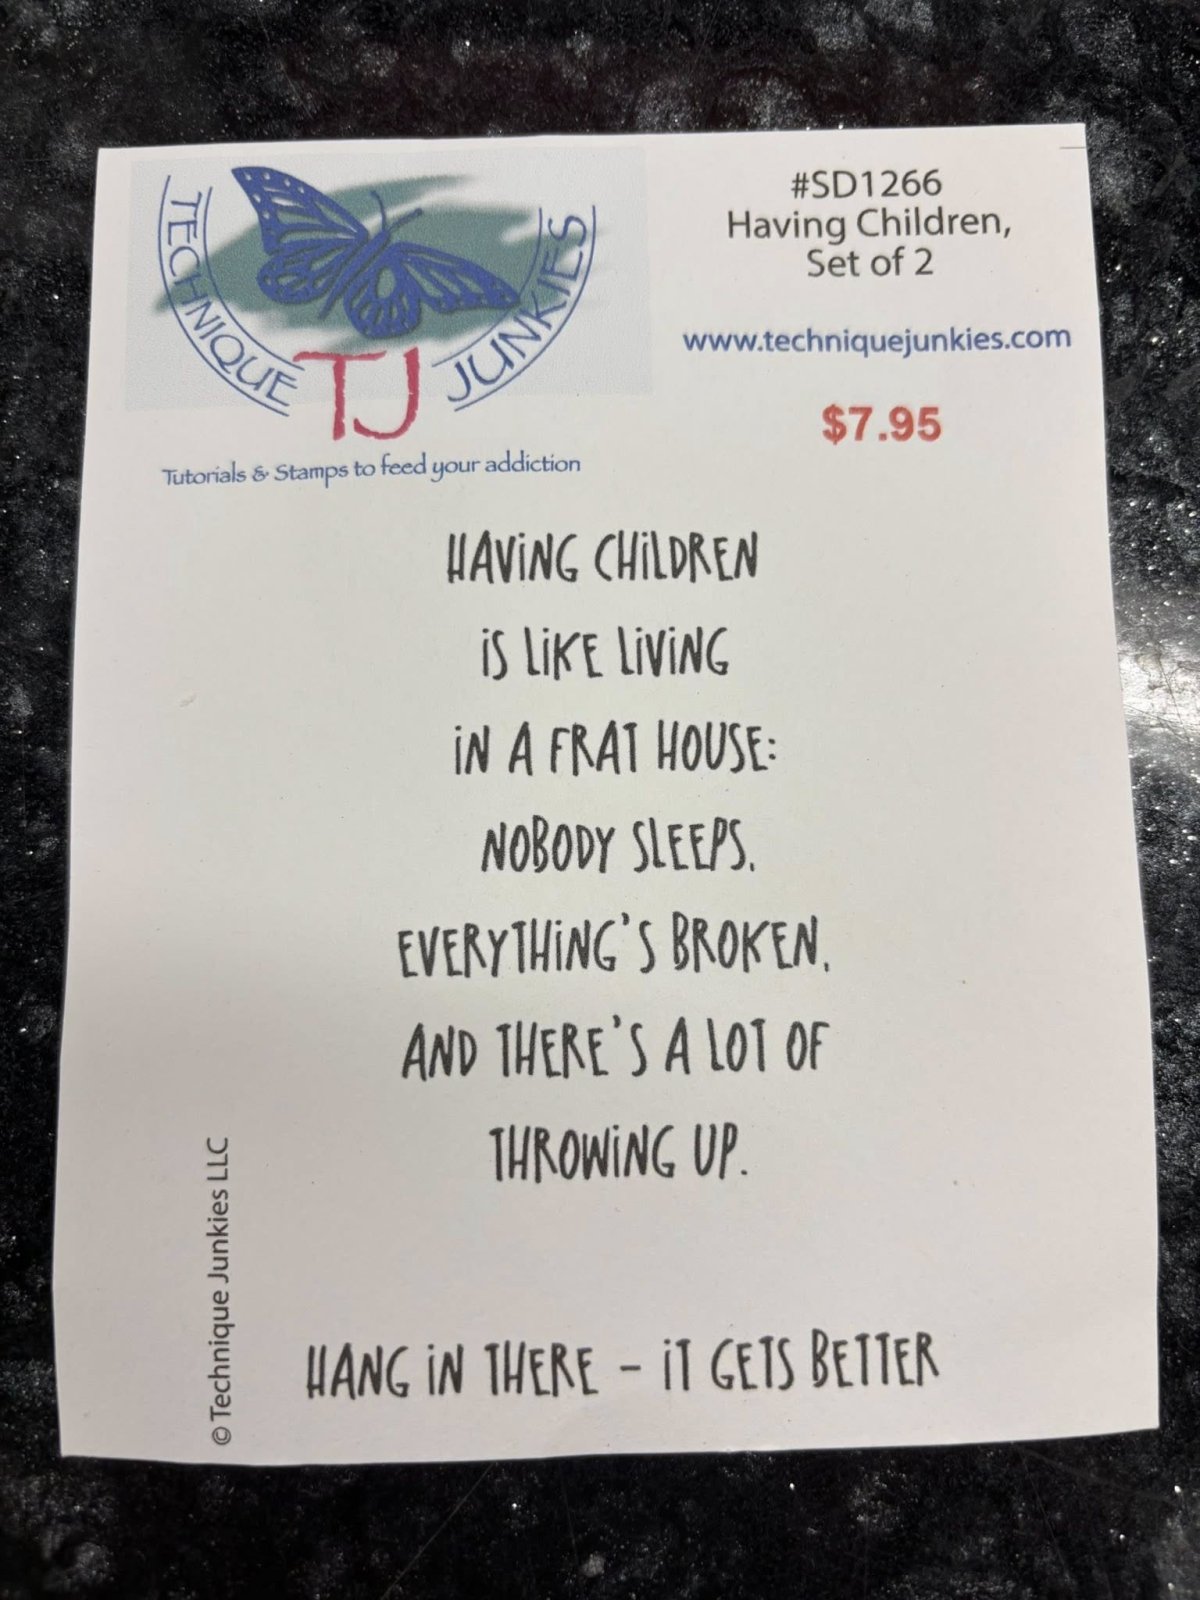 TECHNIQUE JUNKIES
TJ
Tutorials & Stamps to feed your addiction
#SD1266
Having Children,
Set of 2
www.techniquejunkies.com
$7.95
HAViNG CHiLDREN
iS LiKE LiViNG
iN A FRAT HOUSE:
NOBODY SLEEPS,
EVERYTHiNG'S BROKEN,
AND THERE'S A LOT OF
THROWiNG UP.
HANG iN THERE - iT GETS BETTER
© Technique Junkies LLC